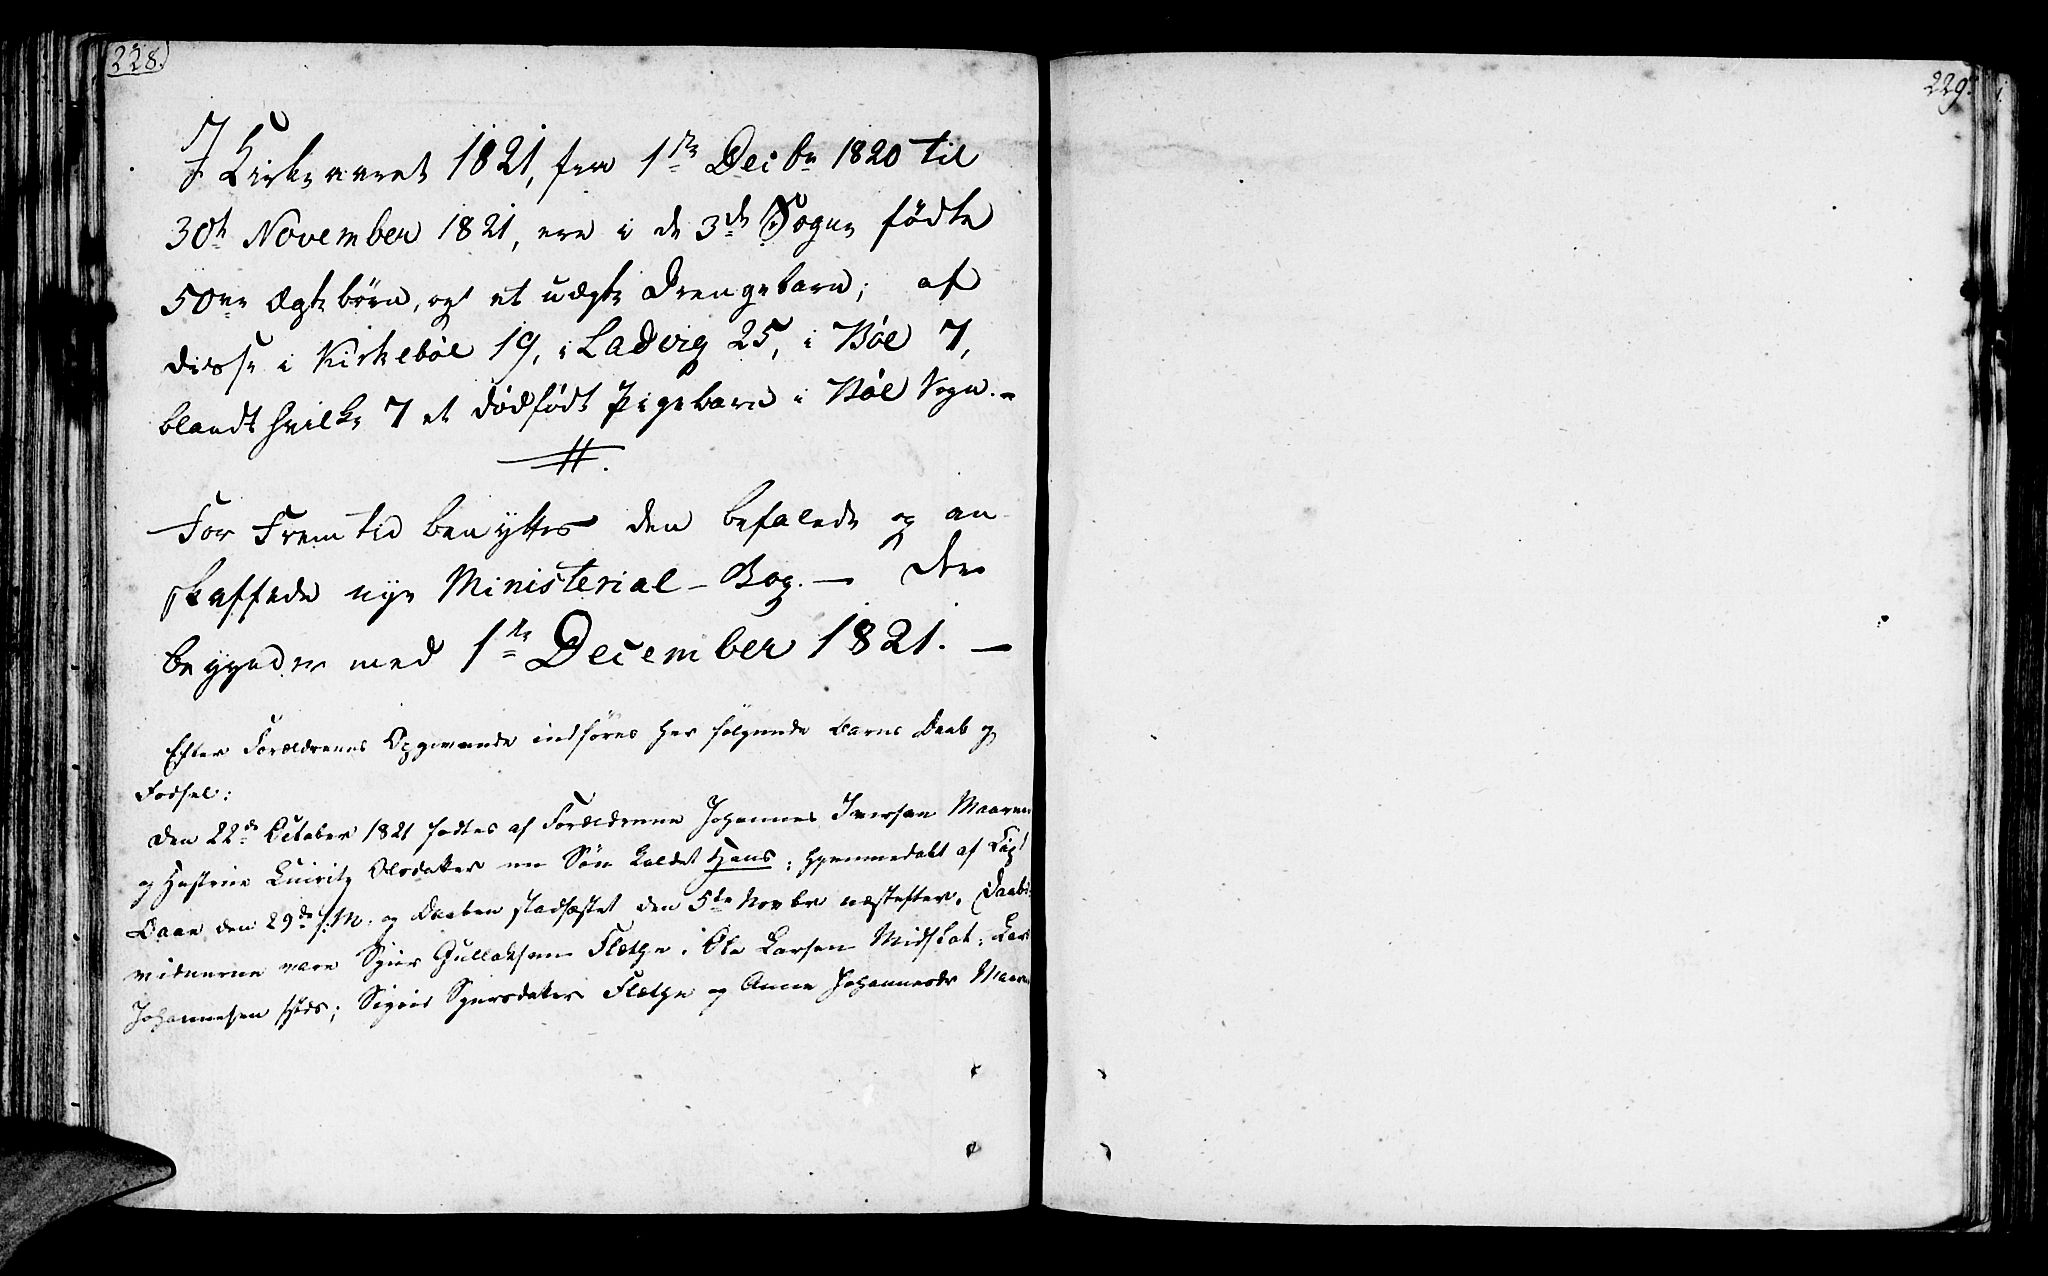 228.
I Kirkeaaret 1821, fra 1ste Decbr 1820 til
30te November 1821, ere i de 3de Sogne fødte
50ve Ægtebørn, og et uægte Drengebarn; af
disse i Kirkebøe 19, i Ladvig 25, i Bøe 7,
blandt hvilke 7 et dødfødt Pigebarn i Bøe Sogn.-
For Fremtid benyttes den befalede og an-
skaffede nye Ministerial-Bog. - Den
begynder med 1ste December 1821. -
Efter Forældrenes Opgivende indføres her følgende Barns Daab og
Fødsel:
Den 22de October 1821 fødtes af Forældrene Johannes Iversen Maaren
og Hustrue Olsdatter en Søn kaldet Hans; hjemmedøbt af
den 29de s. M. og Daaben stadfæstet den 5te Novbr næstefter. Daabs-
vidnerne vare Gullaksen Flølhe; Ole Larsen Midtbøe; Lars
Johannesen Sigrid Flølhe og Anna Johannesdr Maaren
229.